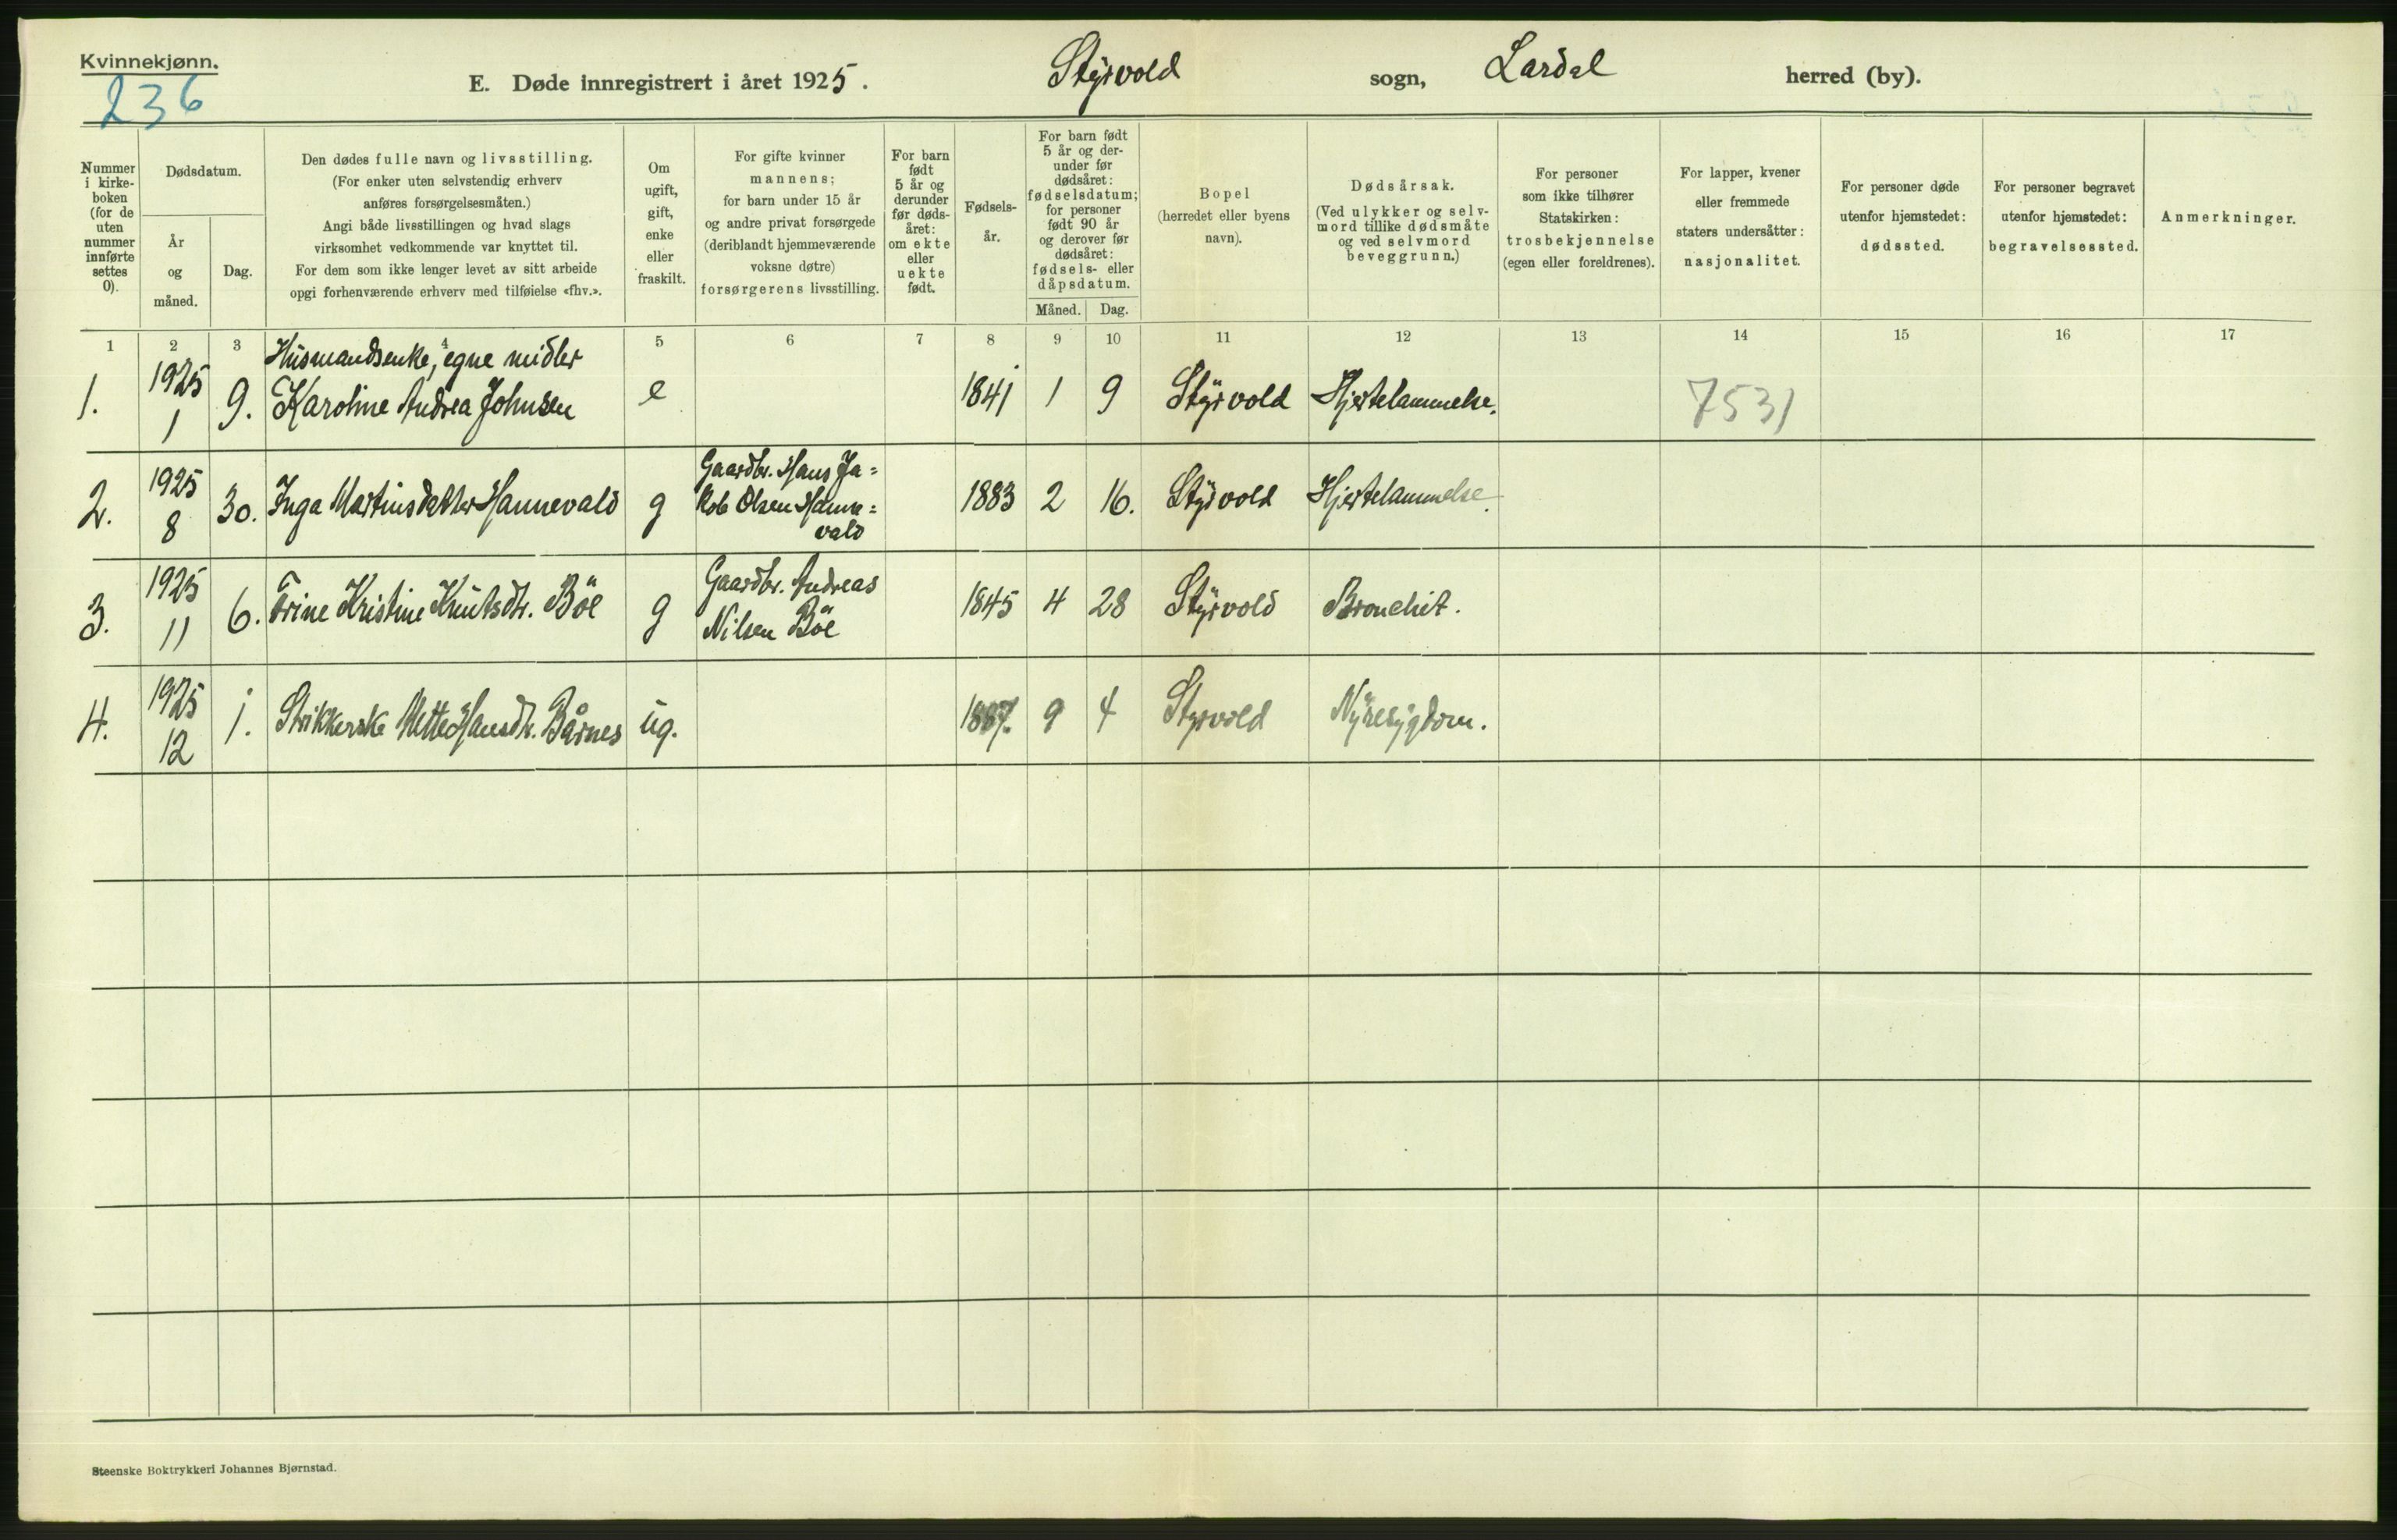 Kvinnekjønn.
236
E. Døde innregistrert i året 1925. Styrvold sogn, Lardal herred (by).
Nummer i kirke- boken (for de uten nummer innførte settes 0).
Dødsdatum.
År og måned.
Dag.
Den dødes fulle navn og livsstilling.
(For enker uten selvstendig erhverv
anføres forsørgelsesmåten.)
Angi både livsstillingen og hvad slags
virksomhet vedkommende var knyttet til.
For dem som ikke lenger levet av sitt arbeide
opgi forhenværende erhverv med tilføielse «fhv.».
Om ugift, gift, enke eller fraskilt.
For gifte kvinner
mannens;
for barn under 15 år
og andre privat forsørgede
(deriblandt hjemmeværende
voksne døtre)
forsørgerens livsstilling.
For barn født 5 år og derunder før døds- året: om ekte eller uekte født.
Fødsels- år.
For barn født 5 år og der- under før dødsåret: fødselsdatum; for personer født 90 år og derover før dødsåret: fødsels- eller dåpsdatum.
Måned. Dag.
Bopel
(herredet eller byens
navn).
Dødsårsak.
(Ved ulykker og selv-
mord tillike dødsmåte
og ved selvmord
beveggrunn.)
For personer
som ikke tilhører
Statskirken:
trosbekjennelse
(egen eller foreldrenes).
For lapper, kvener
eller fremmede
staters undersåtter:
nasjonalitet.
For personer døde
utenfor hjemstedet:
dødssted.
For personer begravet
utenfor hjemstedet:
begravelsessted.
Anmerkninger.
1 2 3 4 5 6 7 8 9 10 11 12 13 14 15 16 17
Husmandsenke, egne midler
1. 1925 1 9. Karoline Andrea Johnsen e 1841 1 9 Styrvold Hjertelammelse. 7531
2. 1925 8 30. Inga Martinsdatter Hannevald g Gaardbr. Hans Ja=
kob Olsen Hanne=
vald 1883 2 16. Styrvold Hjertelammelse.
3. 1925 11 6. Trine Kristine Knutsdtr. Böe g Gaardbr. Andreas
Nilsen Böe 1845 4 28 Styrvold Bronchit.
4. 1925 12 1. Strikkerske Mette Hansdtr. Bårnes ug. 9 4 Styrvold Nyresygdom.
Steenske Boktrykkeri Johannes Bjørnstad.